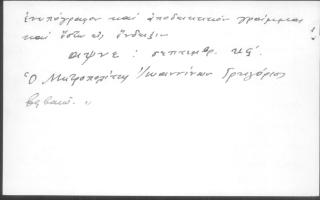 ἐνυπόγραφον καὶ ἀποδεικτικὸν γράμμα
καὶ ὅστω εἰς ἔνδειξιν
αιψνε : σεπτεμβρ. κς´.
Ὁ Μητροπολίτης Ἰωαννίνων Γρηγόριος